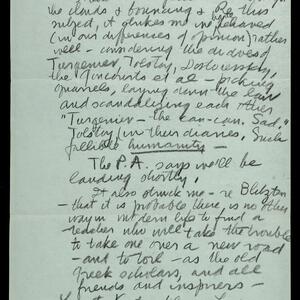 the clouds & bouncing & Re this
subject, it strikes me we behaved
(in our differences of opinion) rather
well — considering the diaries of
Turgeniev, Tolstoy, Dostoievsky,
the Goncourts et al — picking
quarrels, laying down the law
and scandalizing each other
"Turgeniev — the can-can. Sad."
Tolstoy (in their diaries. Such
fallible humanity —
The P.A. says we'll be
landing shortly.
It also struck me — re Blitzton
— that it is probable there is no other
way in modern life to find a
teacher who will take the trouble
to take one over a new road
— and to look — as the old
Greek scholars, and all
friends and inspirers —